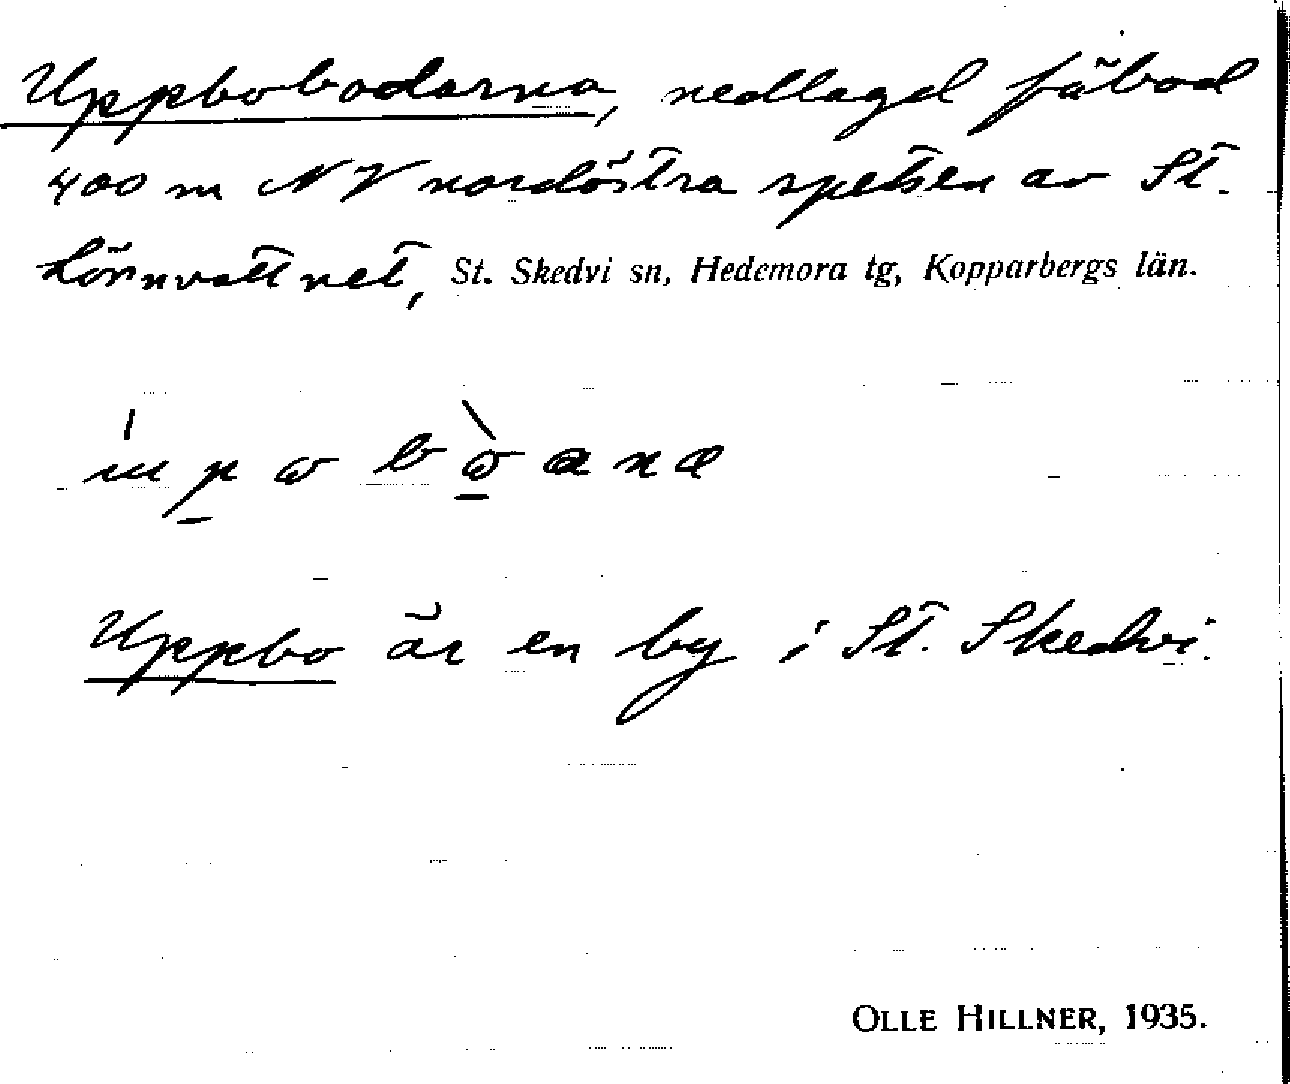 Uppbobodarna, nedlagd fäbod
400 m NV nordöstra spetsen av St.
Lönnvattnet, St. Skedvi sn, Hedemora tg, Kopparbergs län.
Uppbo är en by i St. Skedvi.
OLLE HILLNER, 1935.